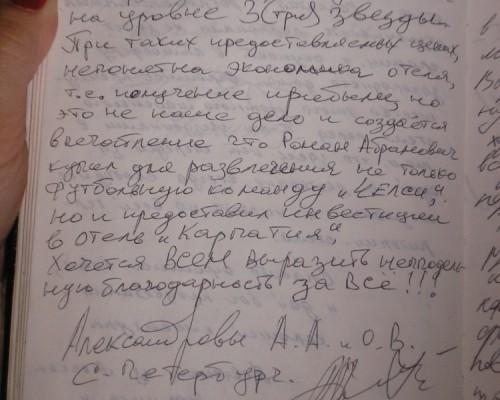 на уровне 3(три) звезды.
При таких предоставляемых ценах,
непонятна экономика отеля,
т.е. получение прибыли, но
это не наше дело и создаётся
впечатление что Роман Абрамович
купил для развлечения не только
футбольную команду „Челси",
но и предоставил инвестиции
в отель „Карпатия",
Хочется всем выразить неподдель-
ную благодарность за всё!!!
Александровы А.А и О.В.
С. Петербург.